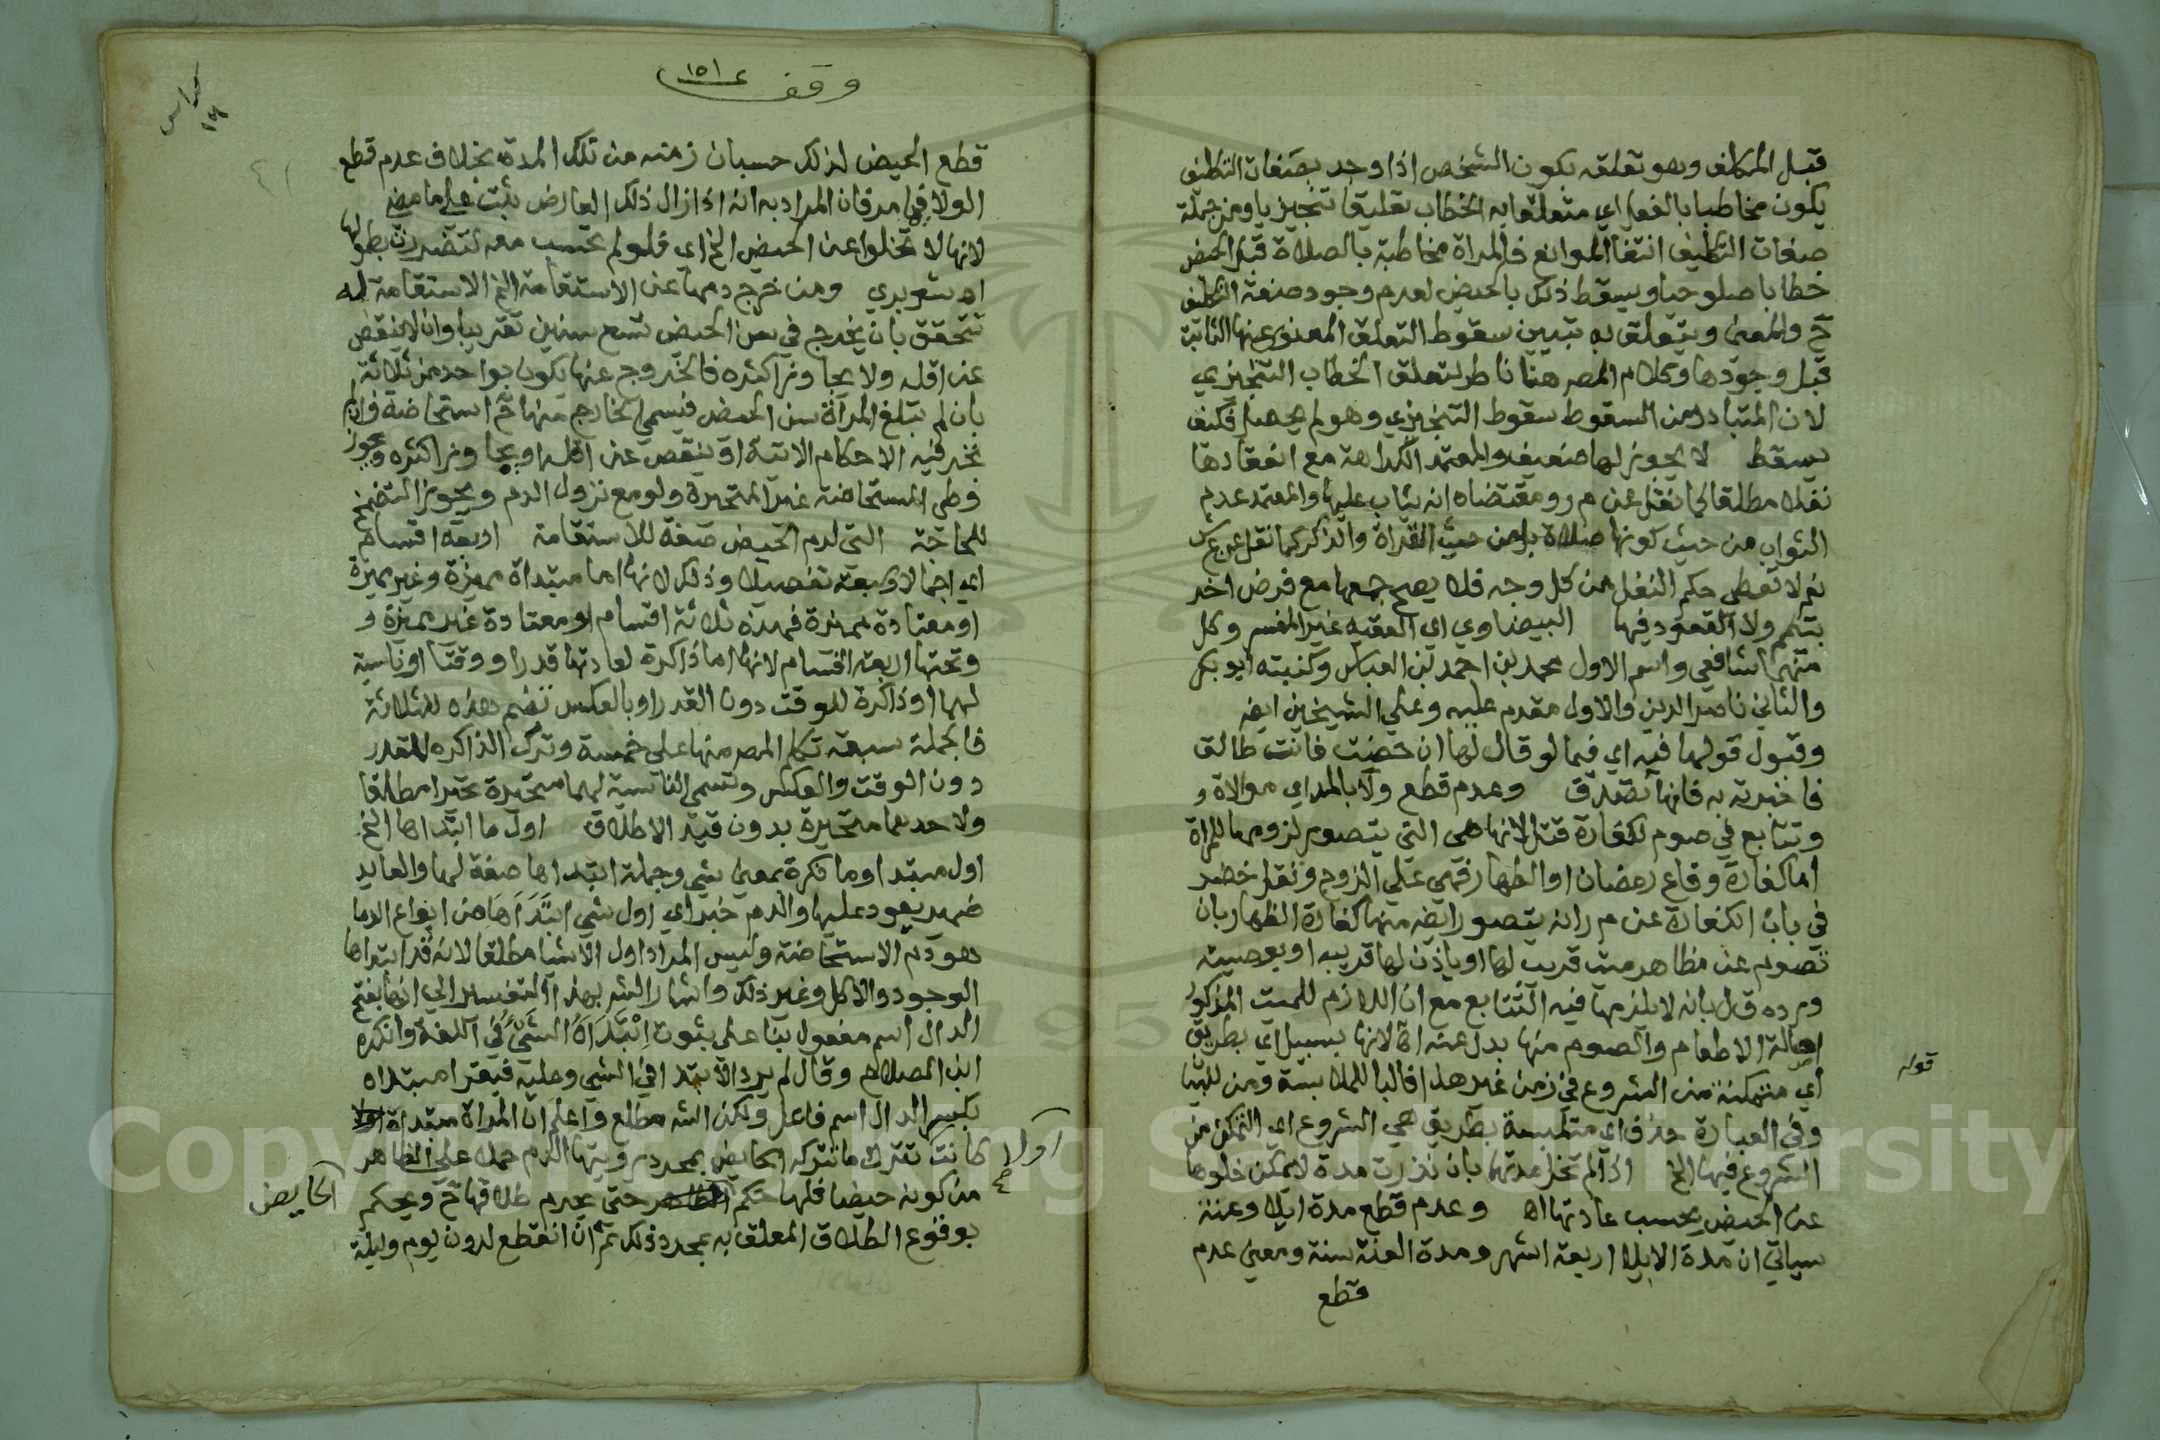 قبل المكلف وهو تعلقه بكون الشخص اذا وجد بصفات التكليف
يكون مخاطبا بالفعل اي متعلقا به الخطاب تعليقا تنجيزيا ومن جملة
صفات التكليف انتفا الموانع فالمراة مخاطبة بالصلاة قبل الحيض
خطابا صلوحيا ويسقط ذلك بالحيض لعدم وجود صفة التكليف
ح والمعنى ويتعلق به تبيين سقوط التعلق المعنوي عنها الثابت
قبل وجودها وكلام المصر هنا ناظر لتعلق الخطاب التنجيزي
لان المتبادر من السقوط سقوط التنجيزي وهو لم يحصل فكيف
يسقط لا يجوز لها ضعيف والمعتمد الكراهة مع انعقادها
نفلا مطلقا كما نقل عن م ر ومقتضاه انه يثاب عليها والمعتمد عدم
الثواب من حيث كونها صلاة بل من حيث القراة والذكر كما نقل عن ع ش
نعم لا تعطى حكم النفل من كل وجه فلا يصح جمعها مع فرض اخر
بتيمم ولا القعود فيها البيضاوي اي الفقيه غير المفسر وكل
منهما شافعي واسم الاول محمد بن احمد بن العباس وكنيته ابو بكر
والثاني ناصر الدين والاول مقدم عليه وعلى الشيخين ايضا
وقبول قولها فيه اي فيما لو قال لها ان حضت فانت طالق
فاخبرته به فانها تصدق وعدم قطع ولا بالمد اي موالاة و
وتتابع في صوم لكفارة قتل لانها هي التي يتصور لزومها للمراة
اما كفارة وقاع رمضان او الظهار فهي على الزوج ونقل خضر
في باب الكفارة عن م ر انه يتصور ايضه منها كفارة الظهار بان
تصوم عن مظاهر ميت قريب لها او باذن لها قريبه او بوصيته
ورده ق ل بانه لا يلزمها فيه التتابع مع ان اللازم للميت المذكور
اصالة الاطعام والصوم منها بدل عنه اه لانها بسبيل اي بطريق
قوله
اي متمكنة من الشروع في زمن غير هذا فالبا للملابسة ومن للبيا
وفي العبارة حذف اي متلبسة بطريق هي الشروع اي التمكن من
الشروع فيها الخ اذا لم تخل مدتها بان نذرت مدة لا يمكن خلوها
عن الحيض بحسب عادتها اه وعدم قطع مدة ايلا وعنة
سياتي ان مدة الايلا اربعة اشهر ومدة العنة سنة ومعنى عدم
قطع
وقف
١٥١
كراس
قطع الحيض لذلك حسبان زمنه من تلك المدة بخلاف عدم قطع
الولا فيما مر فان المراد به انه اذا زال ذلك العارض بنت على ما مضى
لانها لا تخلوا عن الحيض الخ اي فلو لم تحسب معه لتضررت بطولها
اه شوبري ومن خرج دمها عن الاستقامة الخ الاستقامة له
تتحقق بان يخرج في سن الحيض تسع سنين تقريبا وان لا ينقص
عن اقله ولا يجاوز اكثره فالخروج عنها يكون بواحد من ثلاثة
بان لم تبلغ المراة سن الحيض فيسمى الخارج منها ح استحاضة وان لم
تجر فيه الاحكام الاتية او ينقص عن اقله او يجاوز اكثره ويجوز
وطى المستحاضة غير المتحيرة ولو مع نزول الدم ويجوز التضمخ
للحاجة التي لدم الحيض صفة للاستقامة اربعة اقسام
اي اجمالا وسبعة تفصيلا وذلك لانها اما مبتداة مميزة وغير مميزة
او معتادة مميزة فهذه ثلاثة اقسام او معتادة غير مميزة و
وتحتها اربعة اقسام لانها اما ذاكرة لعادتها قدرا ووقتا او ناسية
لهما او ذاكرة للوقت دون القدر او بالعكس تضم هذه للثلاثة
فالجملة سبعة تكلم المصر منها على خمسة وترك الذاكره للقدر
دون الوقت والعكس وتسمى الناسية لهما متحيرة تحيرا مطلقا
ولاحدهما متحيرة بدون قيد الاطلاق اول ما ابتداها الخ
اول مبتدا وما نكرة بمعنى شي وجملة ابتداها صفة لها والعايد
ضمير يعود عليها والدم خبر اي اول شي ابتداها من انواع الدما
هو دم الاستحاضة وليس المراد اول الاشيا مطلقا لانه قد ابتداها
الوجود والاكل وغير ذلك واشار الش بهذا التفسير الى انها بفتح
الدال اسم مفعول بنا على ثبوت ابتداه الشي في اللغة وانكره
ابن الصلاح وقال لم يرد الا ابتدا في الشي وعليه فيقرا مبتداه
بكسر الدال اسم فاعل ولكن الش مطلع واعلم ان المراة مبتداة اولا
اولا كانت تترك ما تتركه الحايض بمجرد رويتها الدم حملا على الظاهر
من كونه حيضا فلها حكم الحايض حتى يحرم طلاقها ح ويحكم
بوقوع الطلاق المعلق به بمجرد ذلك ثم ان انقطع لدون يوم وليلة